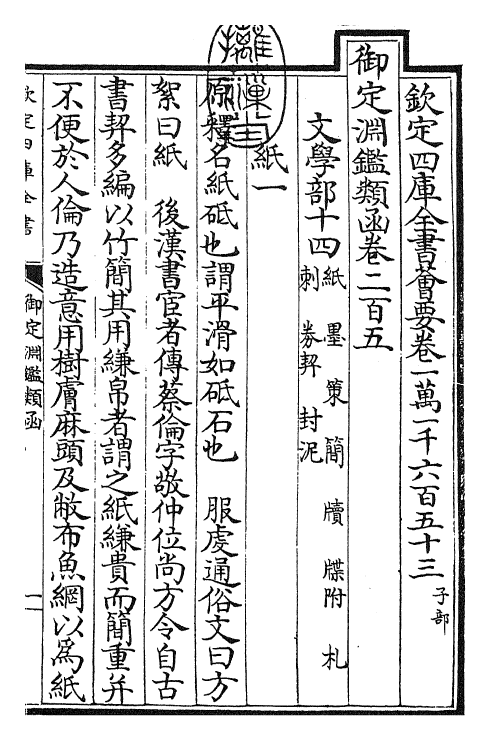 欽定四庫全書薈要卷一萬一千六百五十三 子部
御定淵鑑類函卷二百五
文學部十四 紙 墨 策 簡 牘 牒附 札
刺 券契 封泥
紙一
原釋名紙砥也謂平滑如砥石也 服虔通俗文曰方
絮曰紙 後漢書宦者傳蔡倫字敬仲位尚方令自古
書契多編以竹簡其用縑帛者謂之紙縑貴而簡重并
不便於人倫乃造意用樹膚麻頭及敝布魚網以為紙
欽定四庫全書
御定淵鑑類函
一